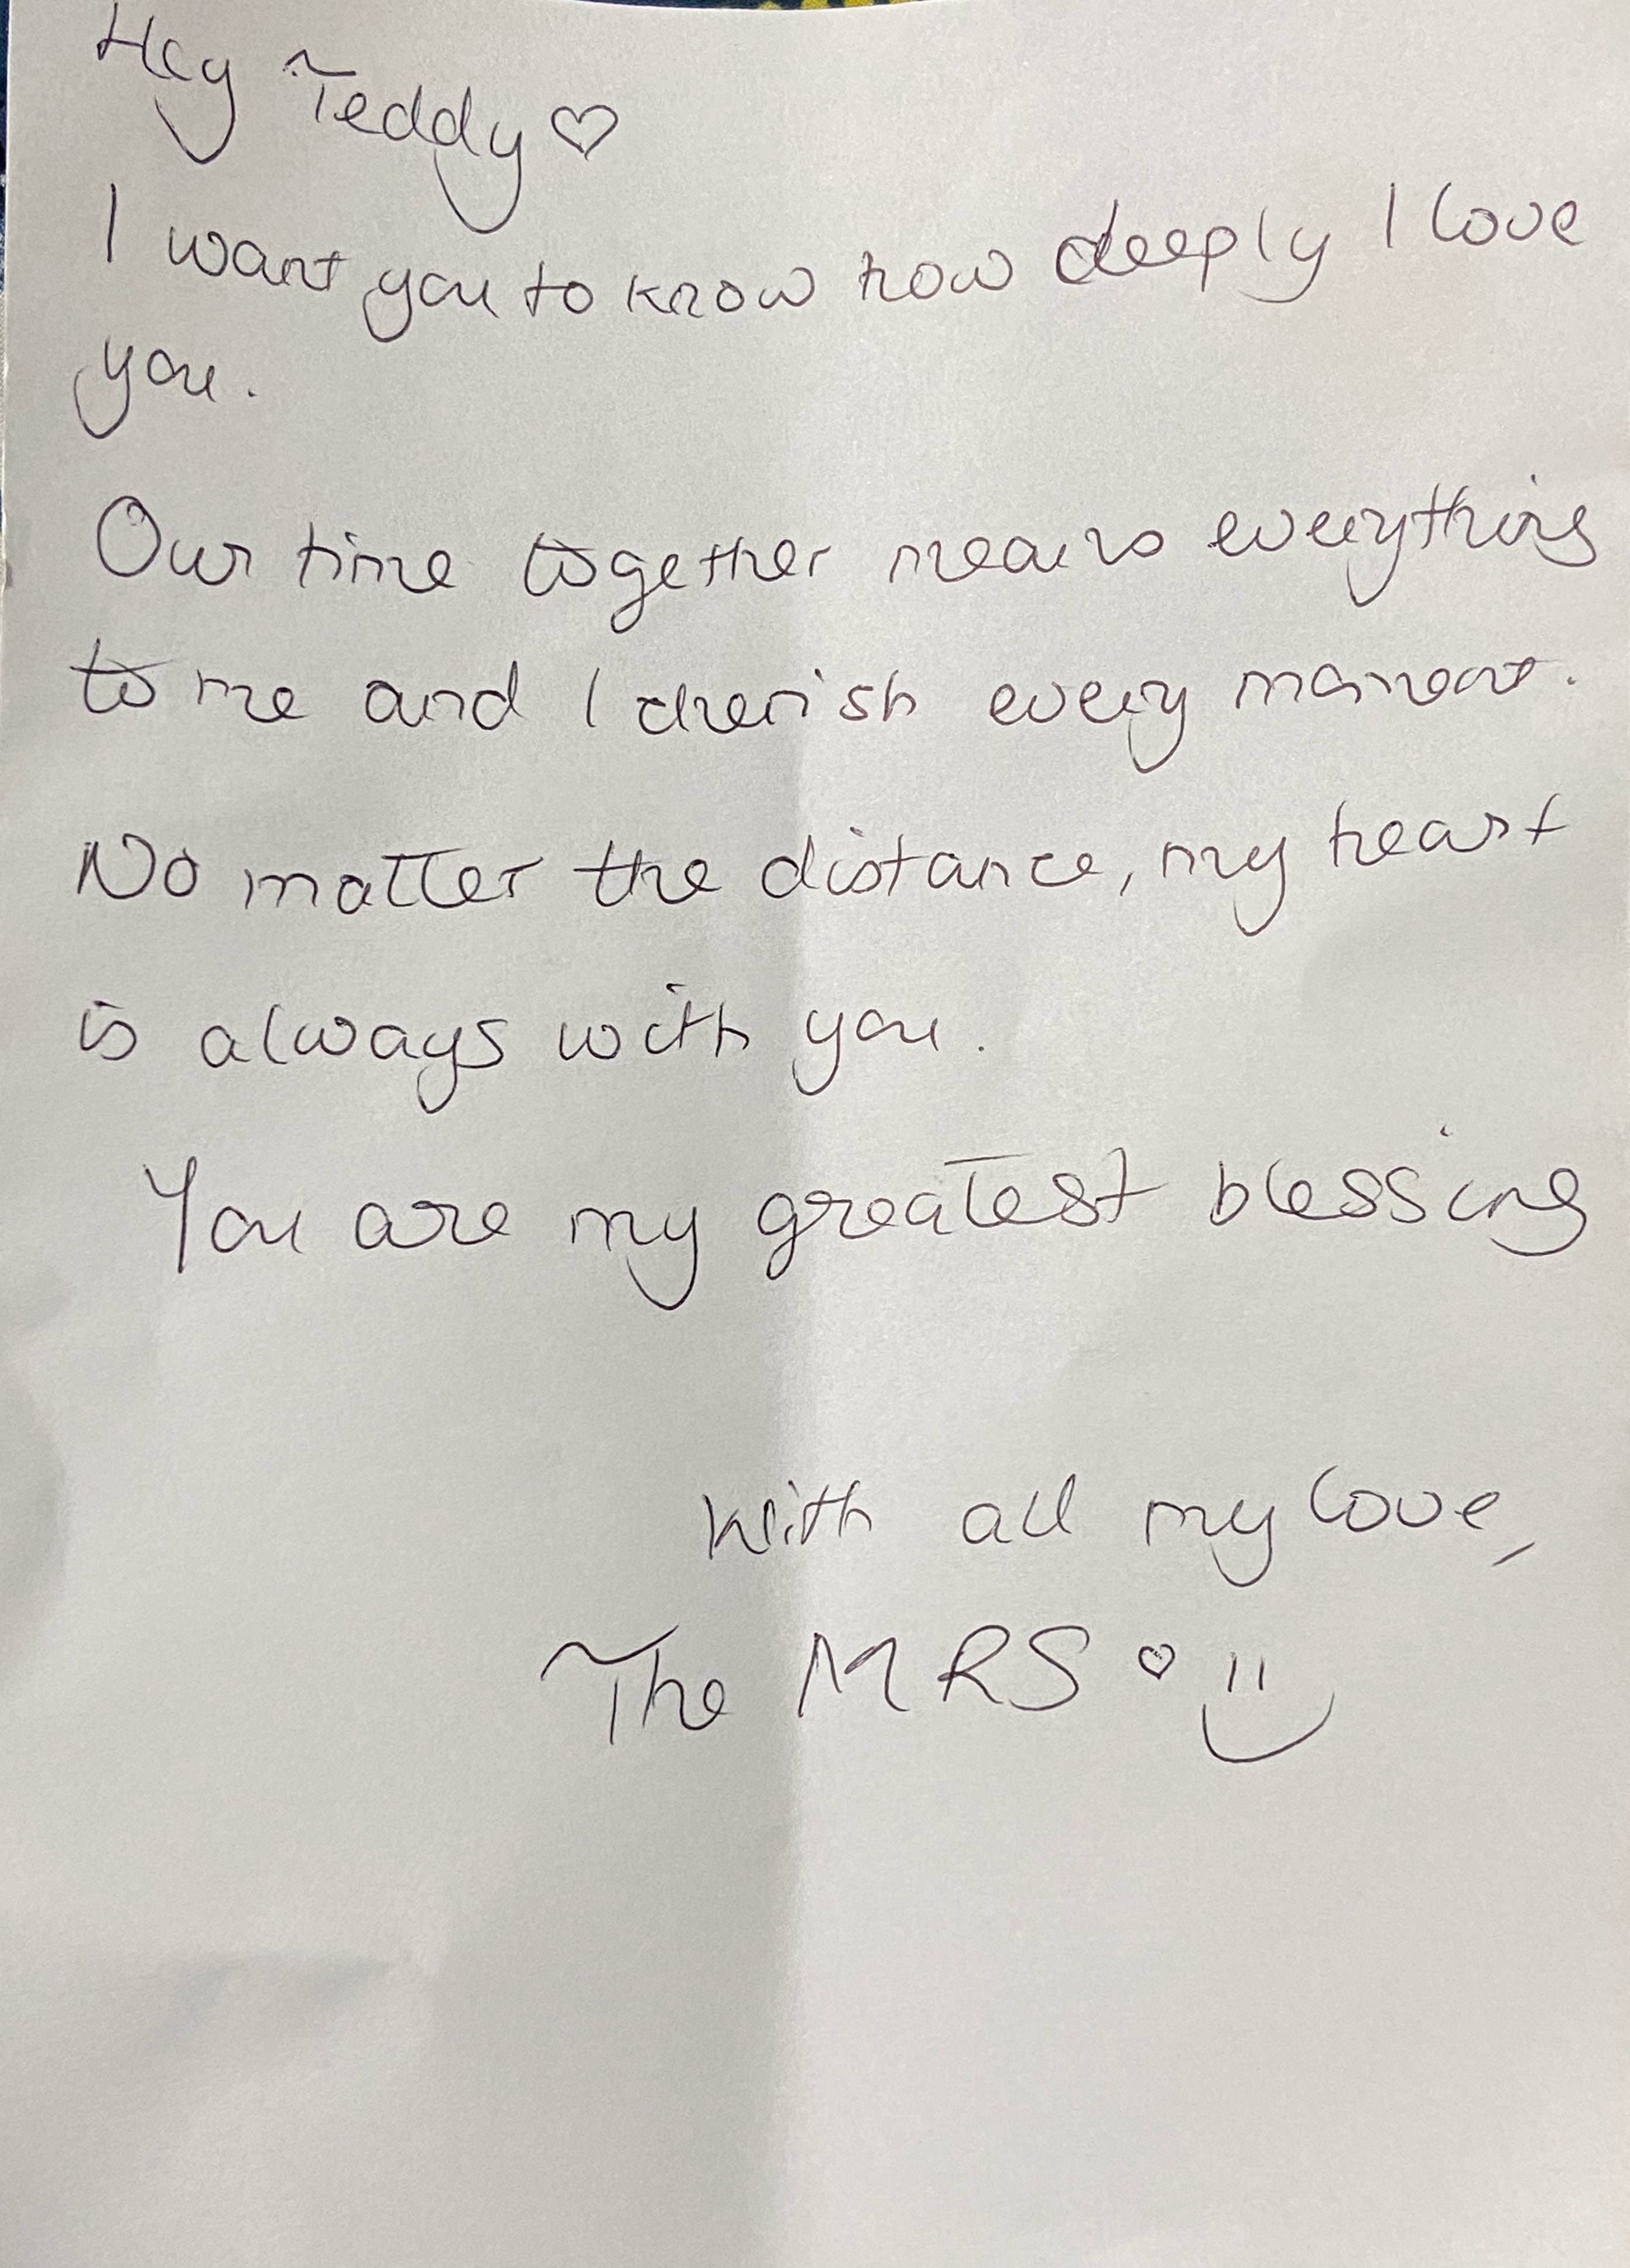 Hey Teddy ♡
I want you to know how deeply I love
you.
Our time together means everything
to me and I cherish every moment.
No matter the distance, my heart
is always with you.
You are my greatest blessing
With all my love,
The MRS ♡ :)